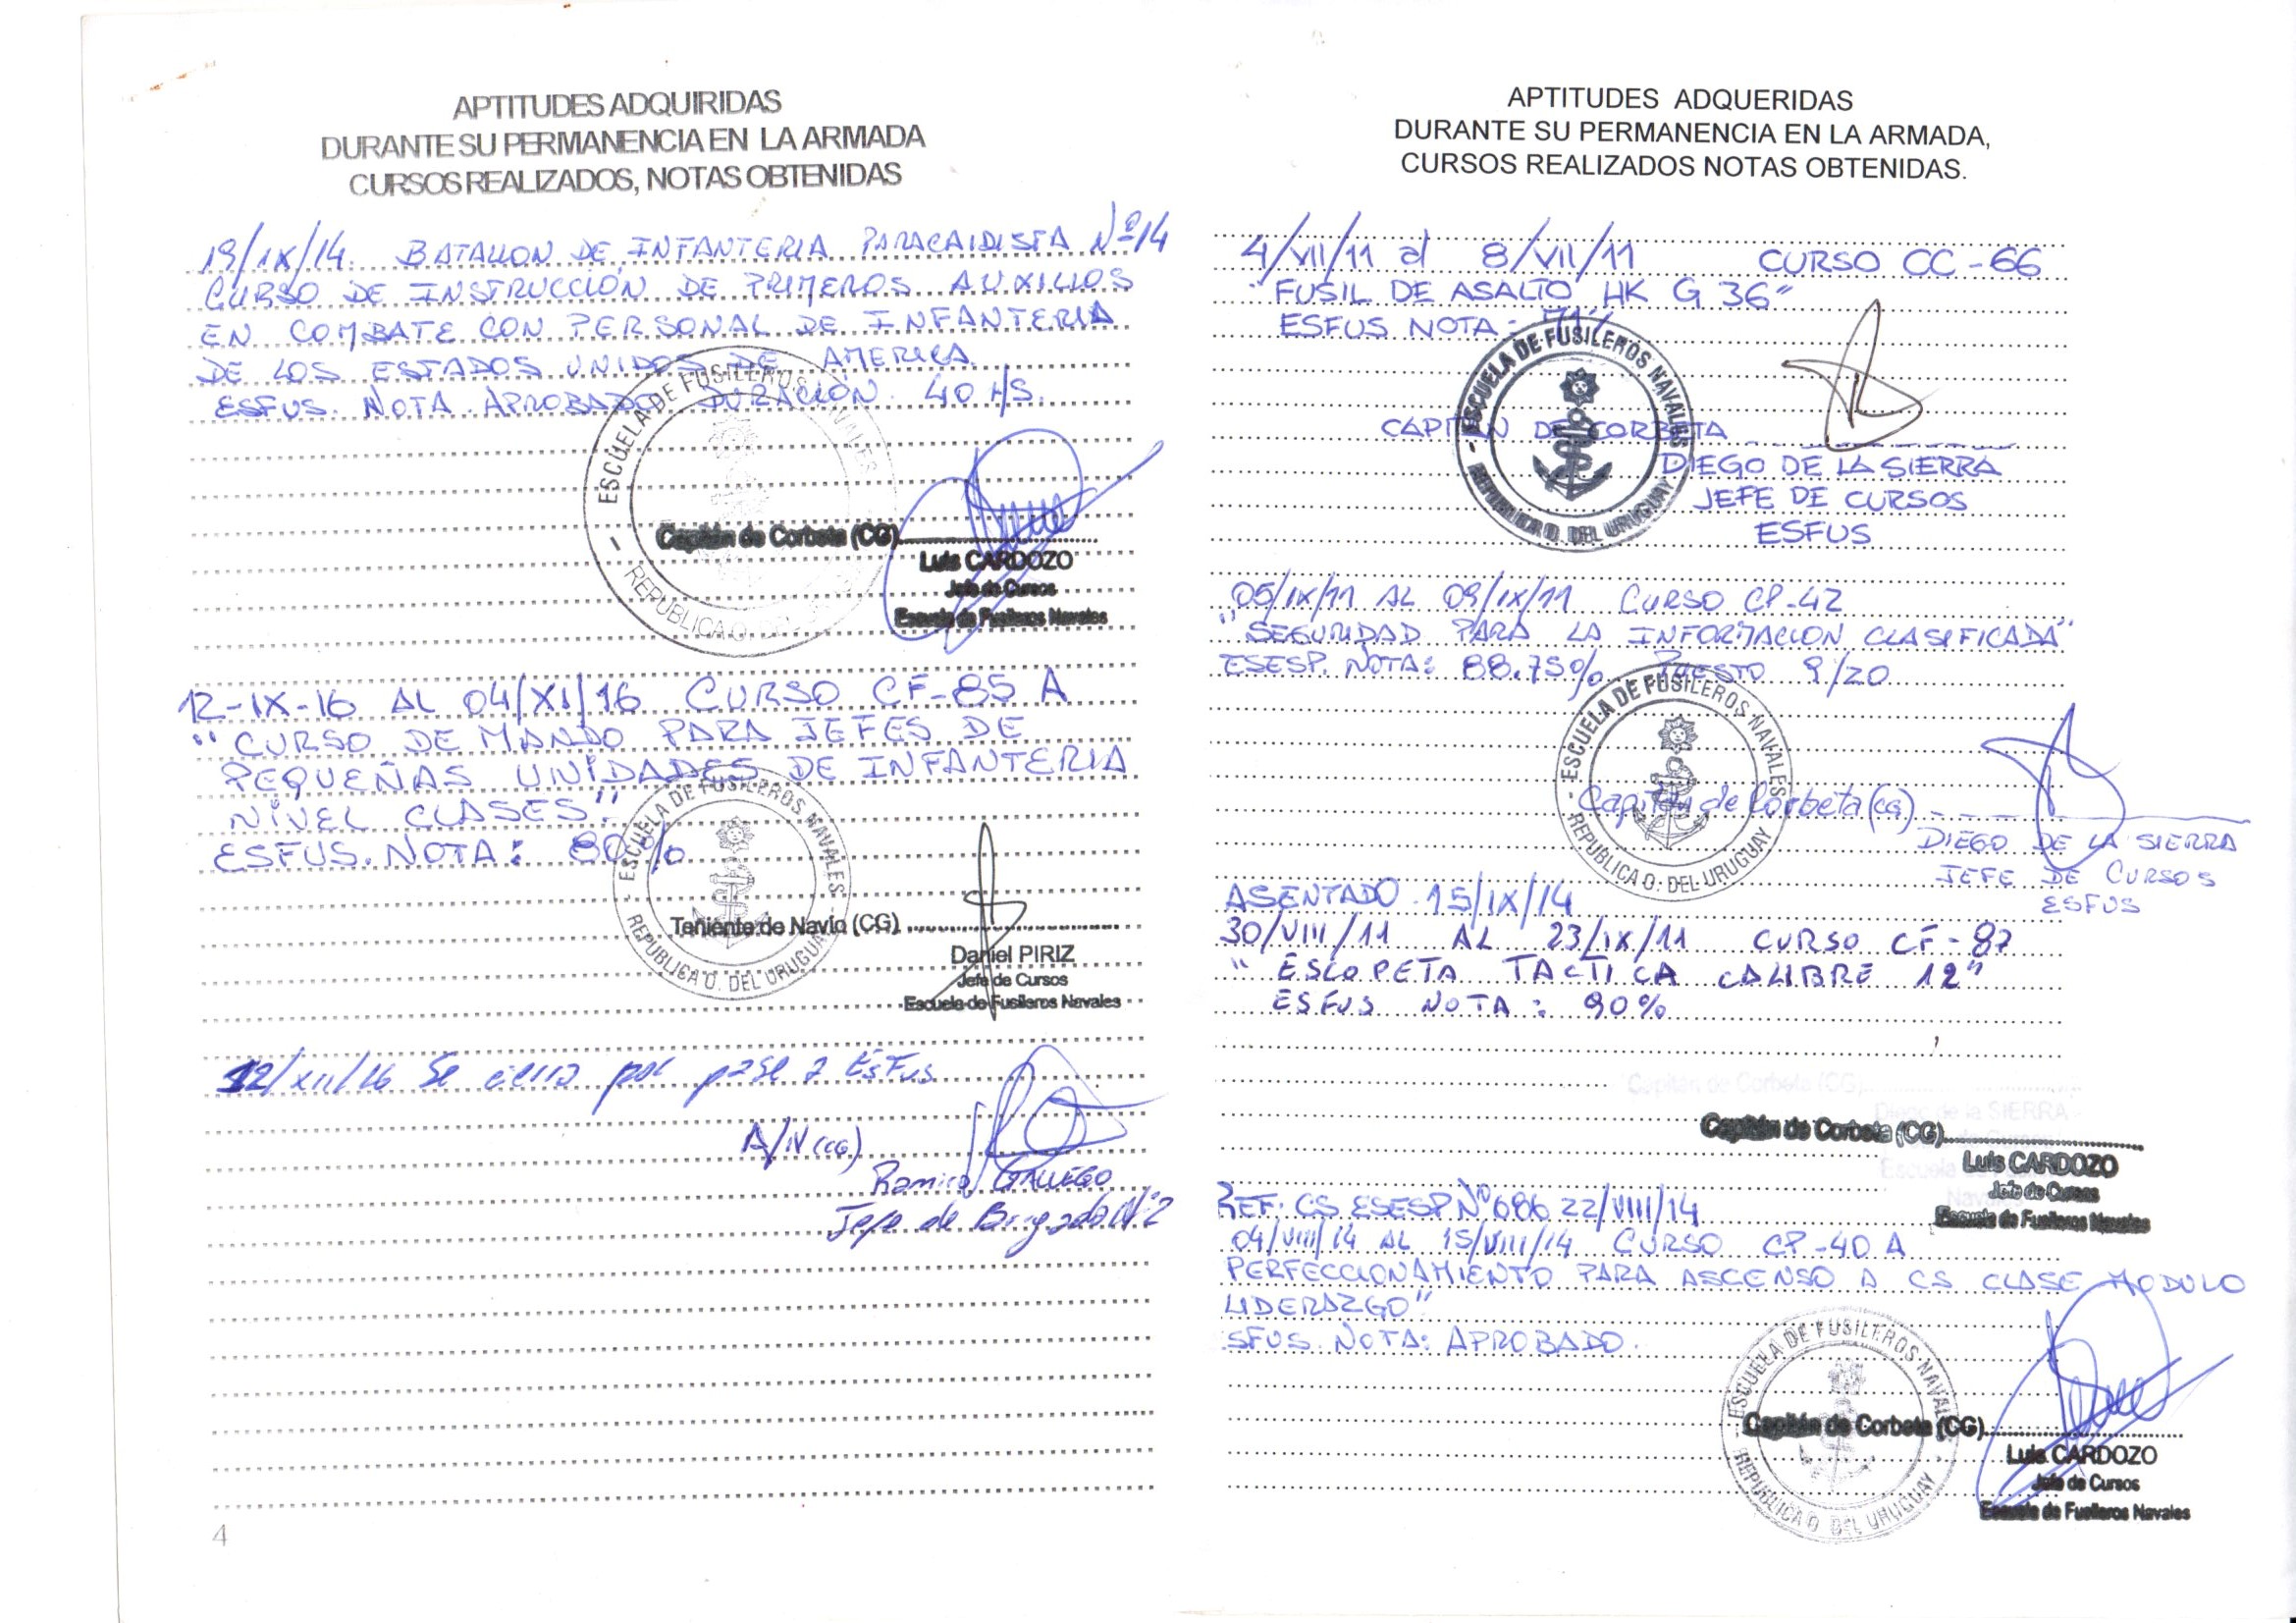 APTITUDES ADQUIRIDAS
DURANTE SU PERMANENCIA EN LA ARMADA
CURSOS REALIZADOS, NOTAS OBTENIDAS
19/IX/14. BATALLON DE INFANTERIA PARACAIDISTA Nº14
CURSO DE INSTRUCCIÓN DE PRIMEROS AUXILIOS
EN COMBATE CON PERSONAL DE INFANTERIA
DE LOS ESTADOS UNIDOS DE AMERICA.
ESFUS. NOTA APROBADO DURACIÓN 40 HS.
- ESCUELA DE FUSILEROS NAVALES -
REPUBLICA O. DEL
Capitán de Corbeta (CG)
Luis CARDOZO
Jefe de Cursos
Escuela de Fusileros Navales
12-IX-16 AL 04/XI/16 CURSO CF-85 A
"CURSO DE MANDO PARA JEFES DE
PEQUEÑAS UNIDADES DE INFANTERIA
NIVEL CLASES"
ESFUS. NOTA: 80%
- ESCUELA DE FUSILEROS NAVALES -
REPUBLICA O. DEL URUGUAY
Teniente de Navío (CG)
Daniel PIRIZ
Jefe de Cursos
Escuela de Fusileros Navales
12/XII/16 Se cierra por pase a EsFus
A/N (CG)
Ramiro GALLEGO
Jefe de Brigada Nº2
4
APTITUDES ADQUERIDAS
DURANTE SU PERMANENCIA EN LA ARMADA,
CURSOS REALIZADOS NOTAS OBTENIDAS.
4/VII/11 al 8/VII/11 CURSO CC-66
"FUSIL DE ASALTO HK G 36"
ESFUS NOTA:
- ESCUELA DE FUSILEROS NAVALES -
REPUBLICA O. DEL URUGUAY
CAPITÁN DE CORBETA
DIEGO DE LA SIERRA
JEFE DE CURSOS
ESFUS
05/IX/11 AL 09/IX/11 CURSO CP-42
"SEGURIDAD PARA LA INFORMACION CLASIFICADA"
ESESP. NOTA: 88.75% PUESTO 9/20
- ESCUELA DE FUSILEROS NAVALES -
REPUBLICA O. DEL URUGUAY
Capitán de Corbeta (CG)
DIEGO DE LA SIERRA
JEFE DE CURSOS
ESFUS
ASENTADO 15/IX/14
30/VIII/11 AL 23/IX/11 CURSO CF-87
"ESCOPETA TACTICA CALIBRE 12"
ESFUS NOTA: 90%
Capitán de Corbeta (CG)
Diego de la SIERRA
Capitán de Corbeta (CG)
Luis CARDOZO
Jefe de Cursos
Escuela de Fusileros Navales
REF: CS ESESP Nº686 22/VIII/14
04/VIII/14 AL 15/VIII/14 CURSO CP-40 A
PERFECCIONAMIENTO PARA ASCENSO A CS CLASE MODULO
LIDERAZGO"
SFUS. NOTA: APROBADO.
- ESCUELA DE FUSILEROS NAVALES -
REPUBLICA O. DEL URUGUAY
Capitán de Corbeta (CG)
Luis CARDOZO
Jefe de Cursos
Escuela de Fusileros Navales